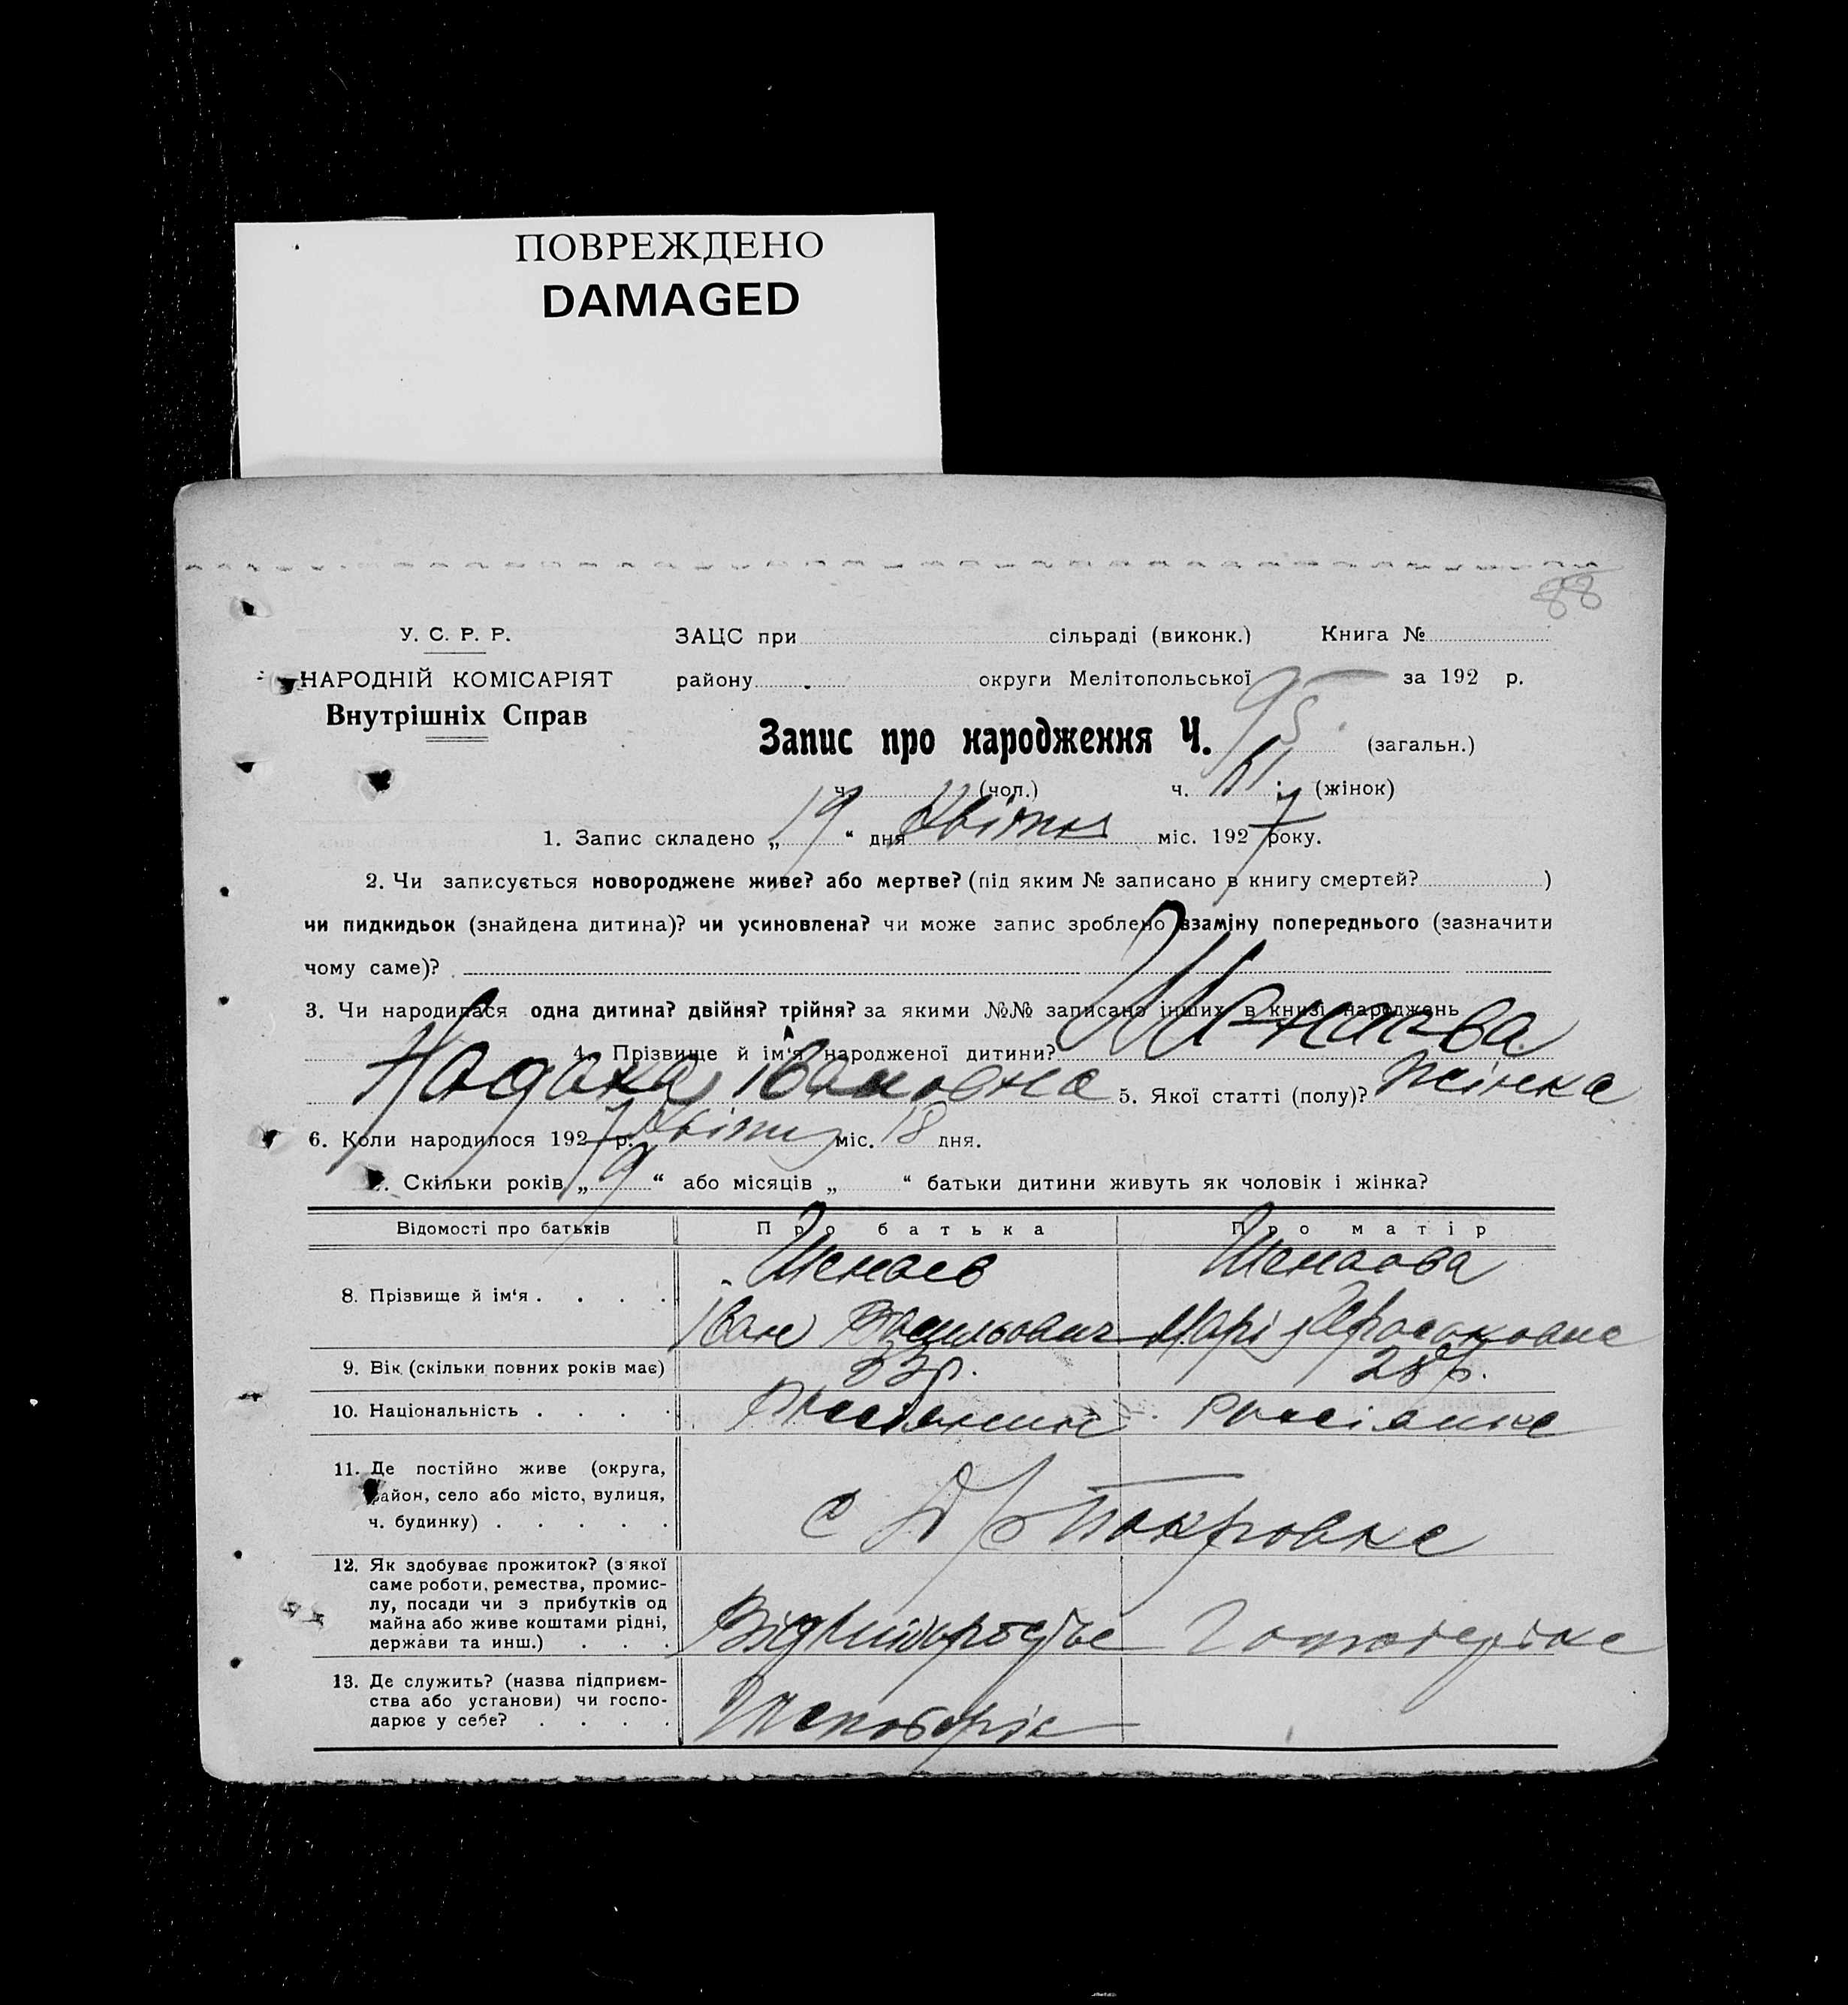 ПОВРЕЖДЕНО
DAMAGED
88
У. С. Р. Р.
НАРОДНІЙ КОМІСАРІЯТ
Внутрішніх Справ
ЗАЦС при сільраді (виконк.) Книга №
району округи Мелітопольської за 192 р.
Запис про народження Ч. 95 (загальн.)
ч. (чол.) ч. (жінок)
1. Запис складено „ 19 “ дня Квітня міс. 1927 року.
2. Чи записується новороджене живе? або мертве? (під яким № записано в книгу смертей? )
чи пидкидьок (знайдена дитина)? чи усиновлена? чи може запис зроблено взаміну попереднього (зазначити
чому саме)?
3. Чи народилася одна дитина? двійня? трійня? за якими №№ записано інших в книзі народжень
4. Прізвище й ім‘я народженої дитини?
Івановна 5. Якої статті (полу)? Жінка
6. Коли народилося 1927 р. Квітня міс. 18 дня.
Скільки років „ 9 “ або місяців „ “ батьки дитини живуть як чоловік і жінка?
Відомості про батьків Про батька Про матір
8. Прізвище й ім‘я . . . .
Іван Васильович Марія
9. Вік (скільки повних років має) 33р. 28р.
10. Національність . . . . Россіянин Россіянка
11. Де постійно живе (округа,
район, село або місто, вулиця,
ч. будинку) . . . . .
с Покровка
12. Як здобуває прожиток? (з якої
саме роботи, ремества, промис-
лу, посади чи з прибутків од
майна або живе коштами рідні,
держави та инш.) . . .
Від
13. Де служить? (назва підприєм-
ства або установи) чи госпо-
дарює у себе? . . . .